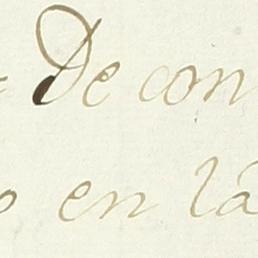 De con
en la